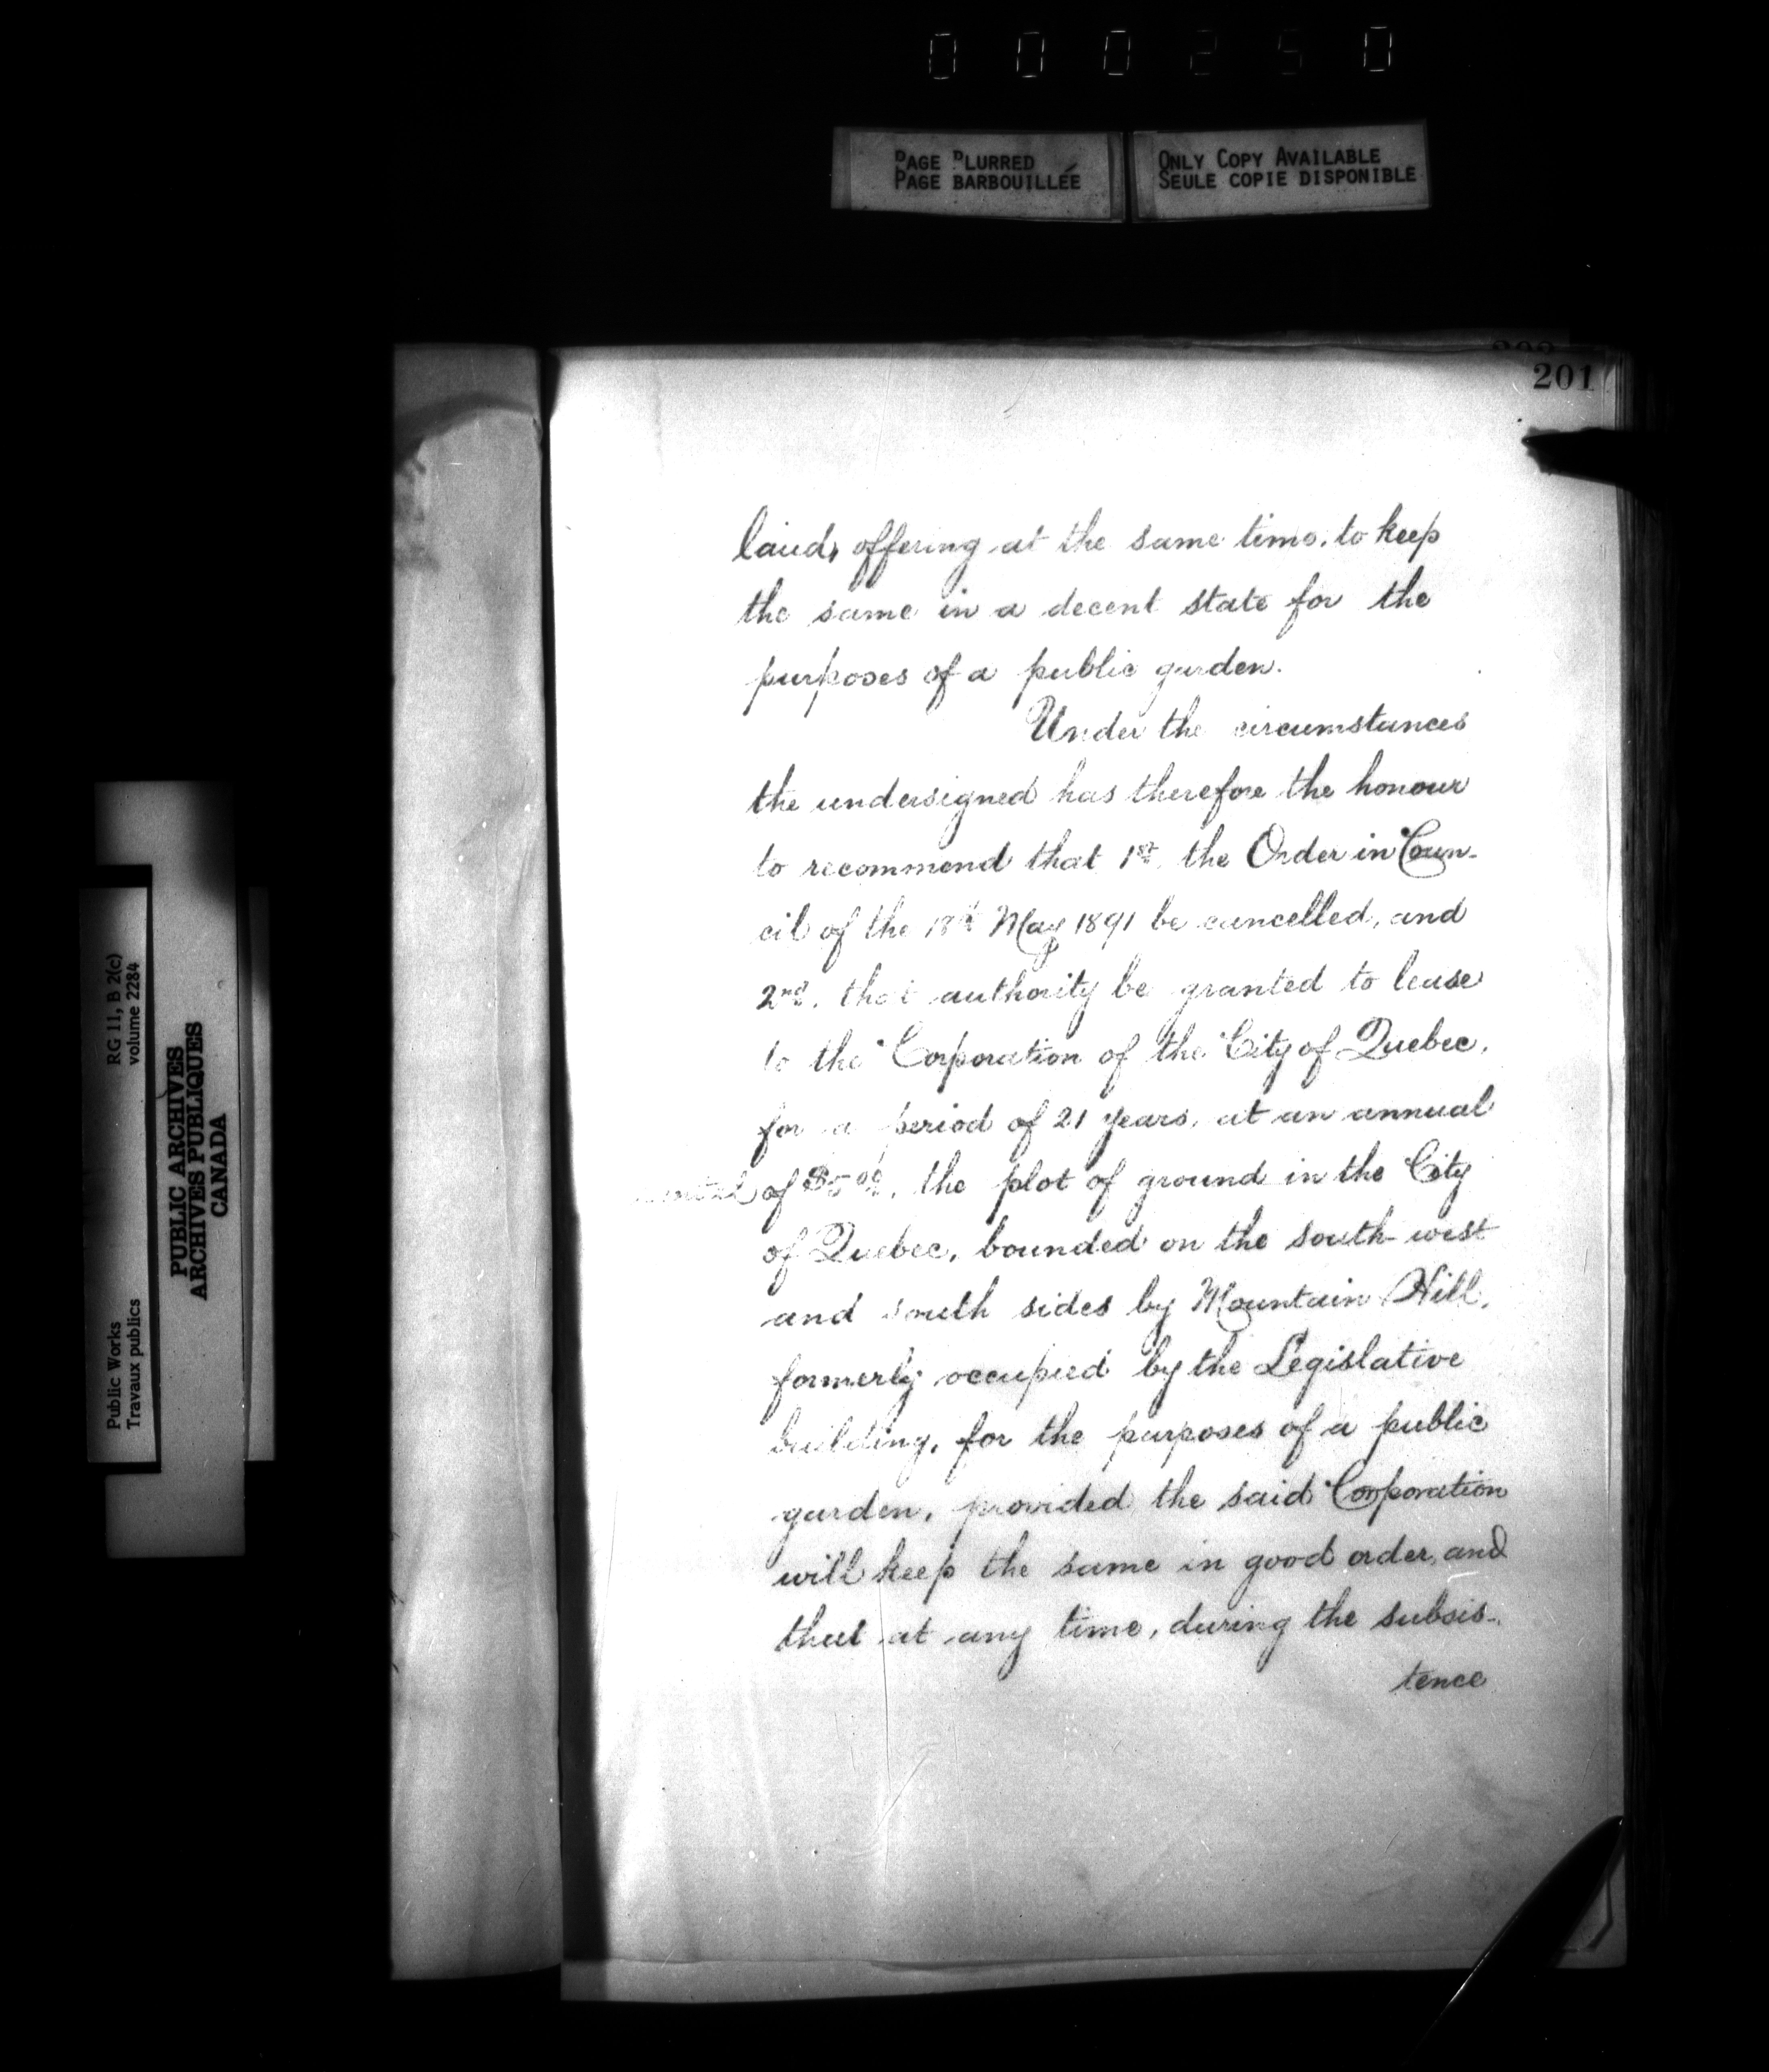 000250
PAGE BLURRED
PAGE BARBOUILLÉE
ONLY COPY AVAILABLE
SEULE COPIE DISPONIBLE
201
land, offering at the same time, to keep
the same in a decent state for the
purposes of a public garden.
Under the circumstances
the undersigned has therefore the honour
to recommend that 1st the Order in Coun-
cil of the 18th May 1891 be cancelled, and
2nd. that authority be granted to lease
to the Corporation of the City of Quebec,
for a period of 21 years, at an annual
rental of $5.00, the plot of ground in the City
of Quebec, bounded on the south-west
and south sides by Mountain Hill,
formerly occupied by the Legislative
building, for the purposes of a public
garden, provided the said Corporation
will keep the same in good order, and
that at any time, during the subsis-
tence
Public Works
Travaux publics
RG 11, B 2(c)
volume 2284
PUBLIC ARCHIVES
ARCHIVES PUBLIQUES
CANADA